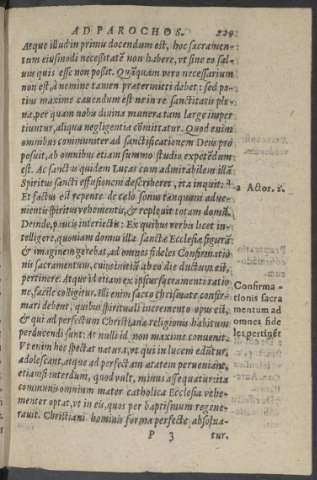 AD PAROCHOS. 229
Atque illud in primu docendum est, hoc sacramen-
tum eiusmodi necessitatē non habere, vt sine eo sal-
uus quis esse non possit. Quāquam vero necessarium
non est, à nemine tamen prætermitti debet: sed po-
tius maxime cauendum est ne in re sanctitatis ple-
na, per quam nobis diuina munera tam large imper
tiuntur, aliqua negligentia cōmittatur. Quod enim
omnibus communiter ad sanctificationem Deus pro
posuit, ab omnibus etiam summo studio expetēdum
est. Ac sanctus quidem Lucas cum admirabilem illā
Spiritus sancti effusionem describeret, ita inquit: a
Et factus est repente de cælo sonus tanquam adue-
nientis spiritus vehementis, & repleuit totam domū.
Deinde, paucis interiectis: Ex quibus verbis licet in-
telligere, quoniam domus illa sanctæ Ecclesiæ figurā
& imaginem gerebat, ad omnes fideles Confirmatio
nis sacramentum, cuius initiū ab eo die ductum est,
pertinere. Atque id etiam ex ipsius sacramenti ratio
ne, facile colligitur. Illi enim sacro chrismate confir-
mari debent, quibus spirituali incremento opus est,
& qui ad perfectum Christianæ religionis habitum
perducendi sunt: At nulli id non maxime conuenit.
Vt enim hoc spectat natura, vt qui in lucem edūtur,
adolescant, atque ad perfectam ætatem perueniant,
etiamsi interdum, quod vult, minus assequatur: ita
communis omnium mater catholica Ecclesia vehe-
menter optat, vt in eis, quos per baptismum regene-
rauit. Christiani hominis forma perfecte absolua-
P 3 tur.
a Actor. 2.
Confirma-
tionis sacra
mentum ad
omnes fide
les pertinet